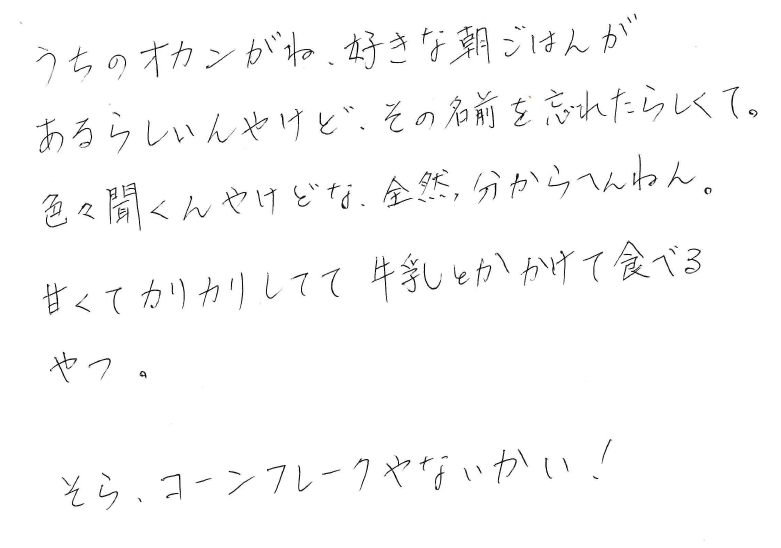 うちのオカンがね、好きな朝ごはんが
あるらしいんやけど、その名前を忘れたらしくて。
色々聞くんやけどな、全然、分からへんねん。
甘くてカリカリしてて 牛乳とかかけて食べる
やつ。
そら、コーンフレークやないかい!